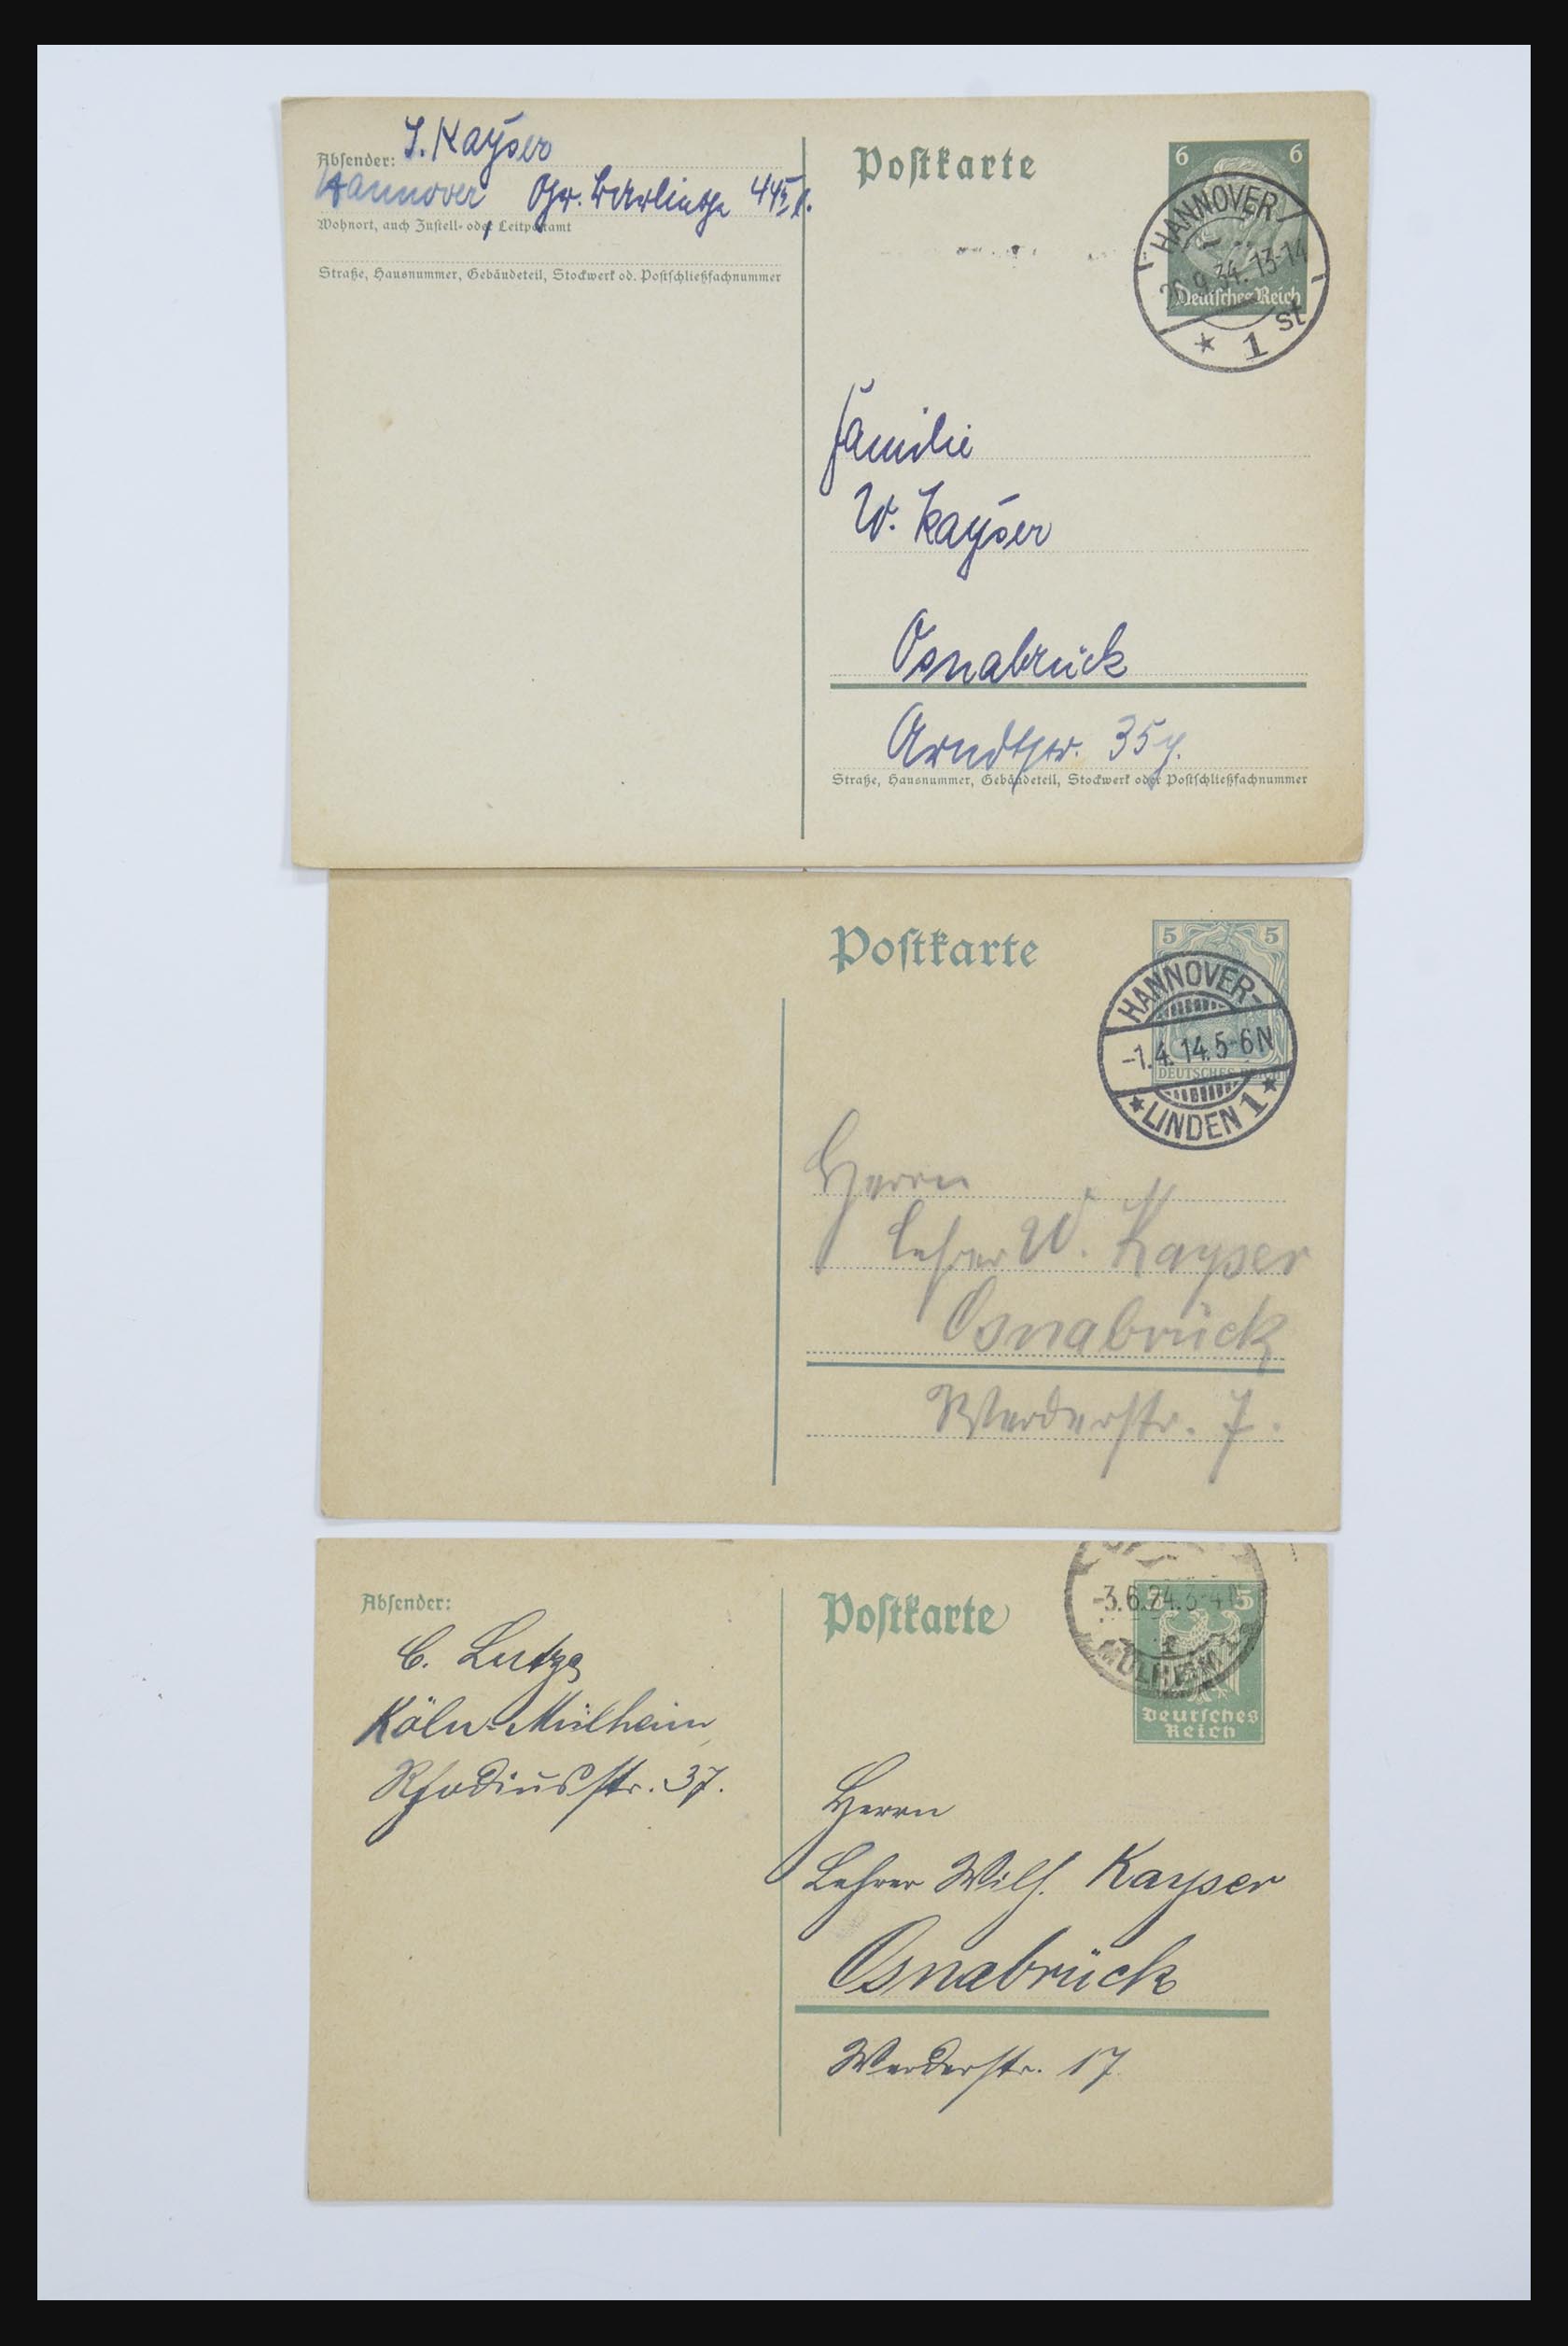 Absender: J. Kayser
Hannover,
Wohnort, auch Zustell- oder Leitpostamt
Straße, Hausnummer, Gebäudeteil, Stockwerk od. Postschließfachnummer
Postkarte
6 6
HANNOVER
9.34. 13-14
Deutsches Reich
* 1 st
Familie
W. Kayser
Osnabrück
Arndtstr. 35
Straße, Hausnummer, Gebäudeteil, Stockwerk oder Postschließfachnummer
Postkarte
5 5
HANNOVER-
-1.4.14.5-6N
DEUTSCHES REICH
* LINDEN 1 *
Herrn
Lehrer W. Kayser
Osnabrück
Werderstr. 7.
Absender:
C. Lutze
Köln-Mülheim
Rhodiusstr. 37.
Postkarte
5
-3.6.24.
MÜLHEIM
Deutsches
Reich
Herrn
Lehrer Wilh. Kayser
Osnabrück
Werderstr. 17.